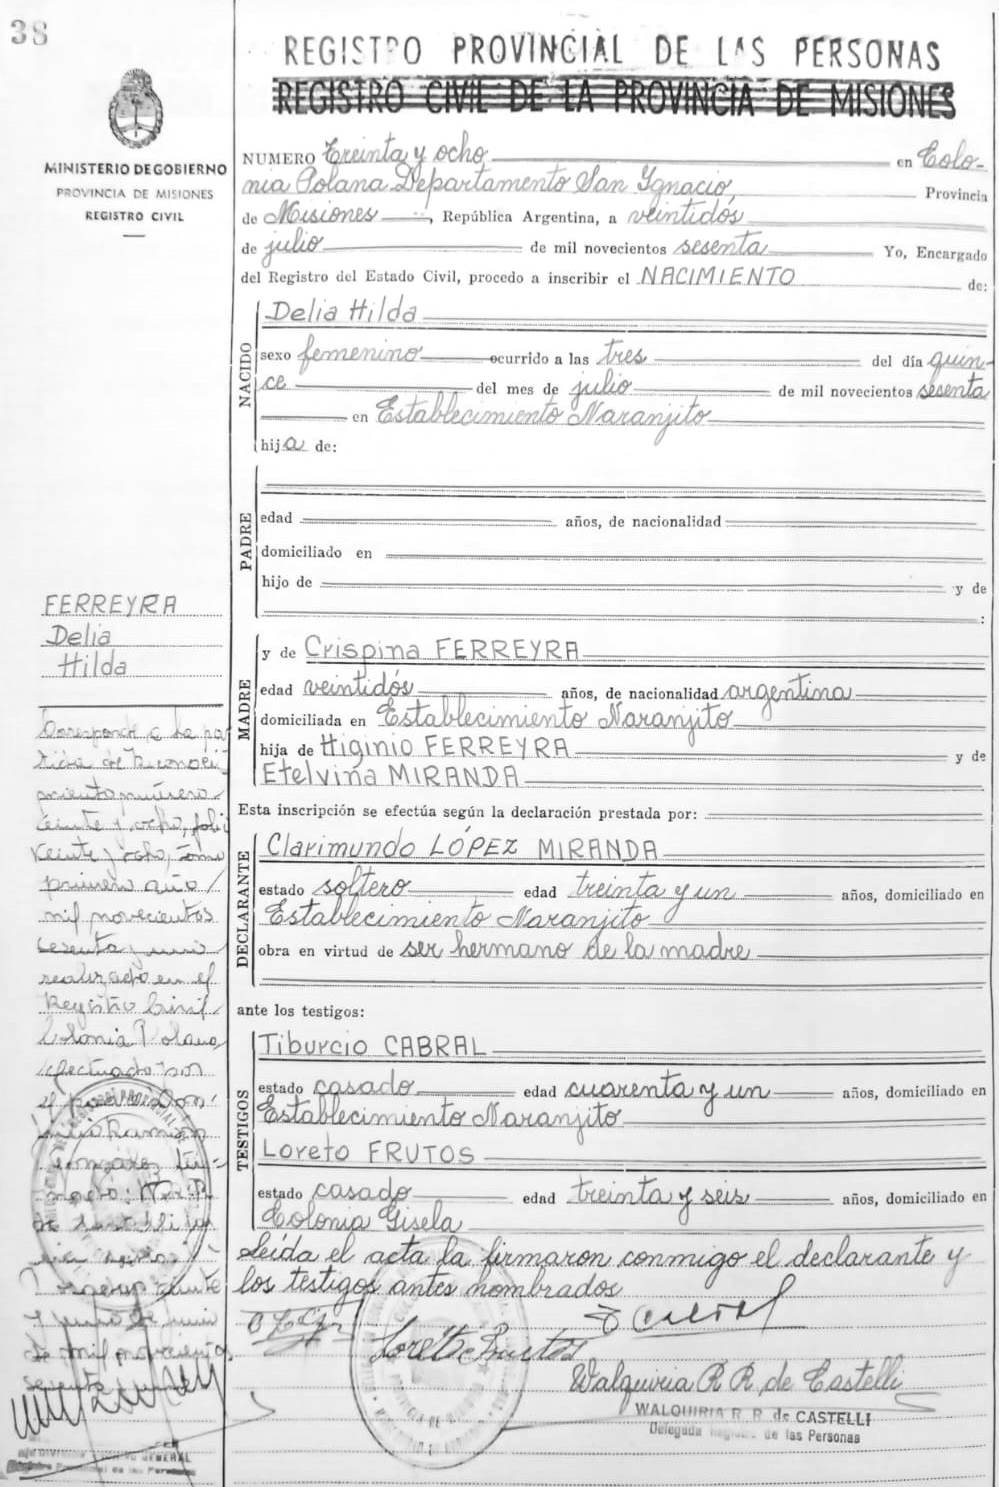 38
REGISTRO PROVINCIAL DE LAS PERSONAS
REGISTRO CIVIL DE LA PROVINCIA DE MISIONES
MINISTERIO DE GOBIERNO
PROVINCIA DE MISIONES
REGISTRO CIVIL
NUMERO Treinta y ocho en Colo-
nia Polana Departamento San Ignacio, Provincia
de Misiones, República Argentina, a veintidós
de julio de mil novecientos sesenta Yo, Encargado
del Registro del Estado Civil, procedo a inscribir el NACIMIENTO de:
NACIDO
Delia Hilda
sexo femenino ocurrido a las tres del día quin-
ce del mes de julio de mil novecientos sesenta
en Establecimiento Naranjito
hija de:
PADRE
edad años, de nacionalidad
domiciliado en
hijo de y de
:
FERREYRA
Delia
Hilda
MADRE
y de Crispina FERREYRA
edad veintidós años, de nacionalidad argentina
domiciliada en Establecimiento Naranjito
hija de Higinio FERREYRA y de
Etelvina MIRANDA
Esta inscripción se efectúa según la declaración prestada por:
DECLARANTE
Clarimundo LÓPEZ MIRANDA
estado soltero edad treinta y un años, domiciliado en
Establecimiento Naranjito
obra en virtud de ser hermano de la madre
ante los testigos:
TESTIGOS
Tiburcio CABRAL
estado casado edad cuarenta y un años, domiciliado en
Establecimiento Naranjito
Loreto FRUTOS
estado casado edad treinta y seis años, domiciliado en
Colonia Gisela
Leída el acta la firmaron conmigo el declarante y
los testigos antes nombrados
Loreto Frutos
Walquiria R. R. de Castelli
WALQUIRIA R. R. de CASTELLI
Delegada Registro de las Personas
Corresponde a la par
tida de Reconoci
miento número
veinte y ocho, folio
veinte y ocho, tomo
primero año
mil novecientos
sesenta y uno
realizado en el
Registro Civil
Colonia Polana
efectuado por
el padre Don